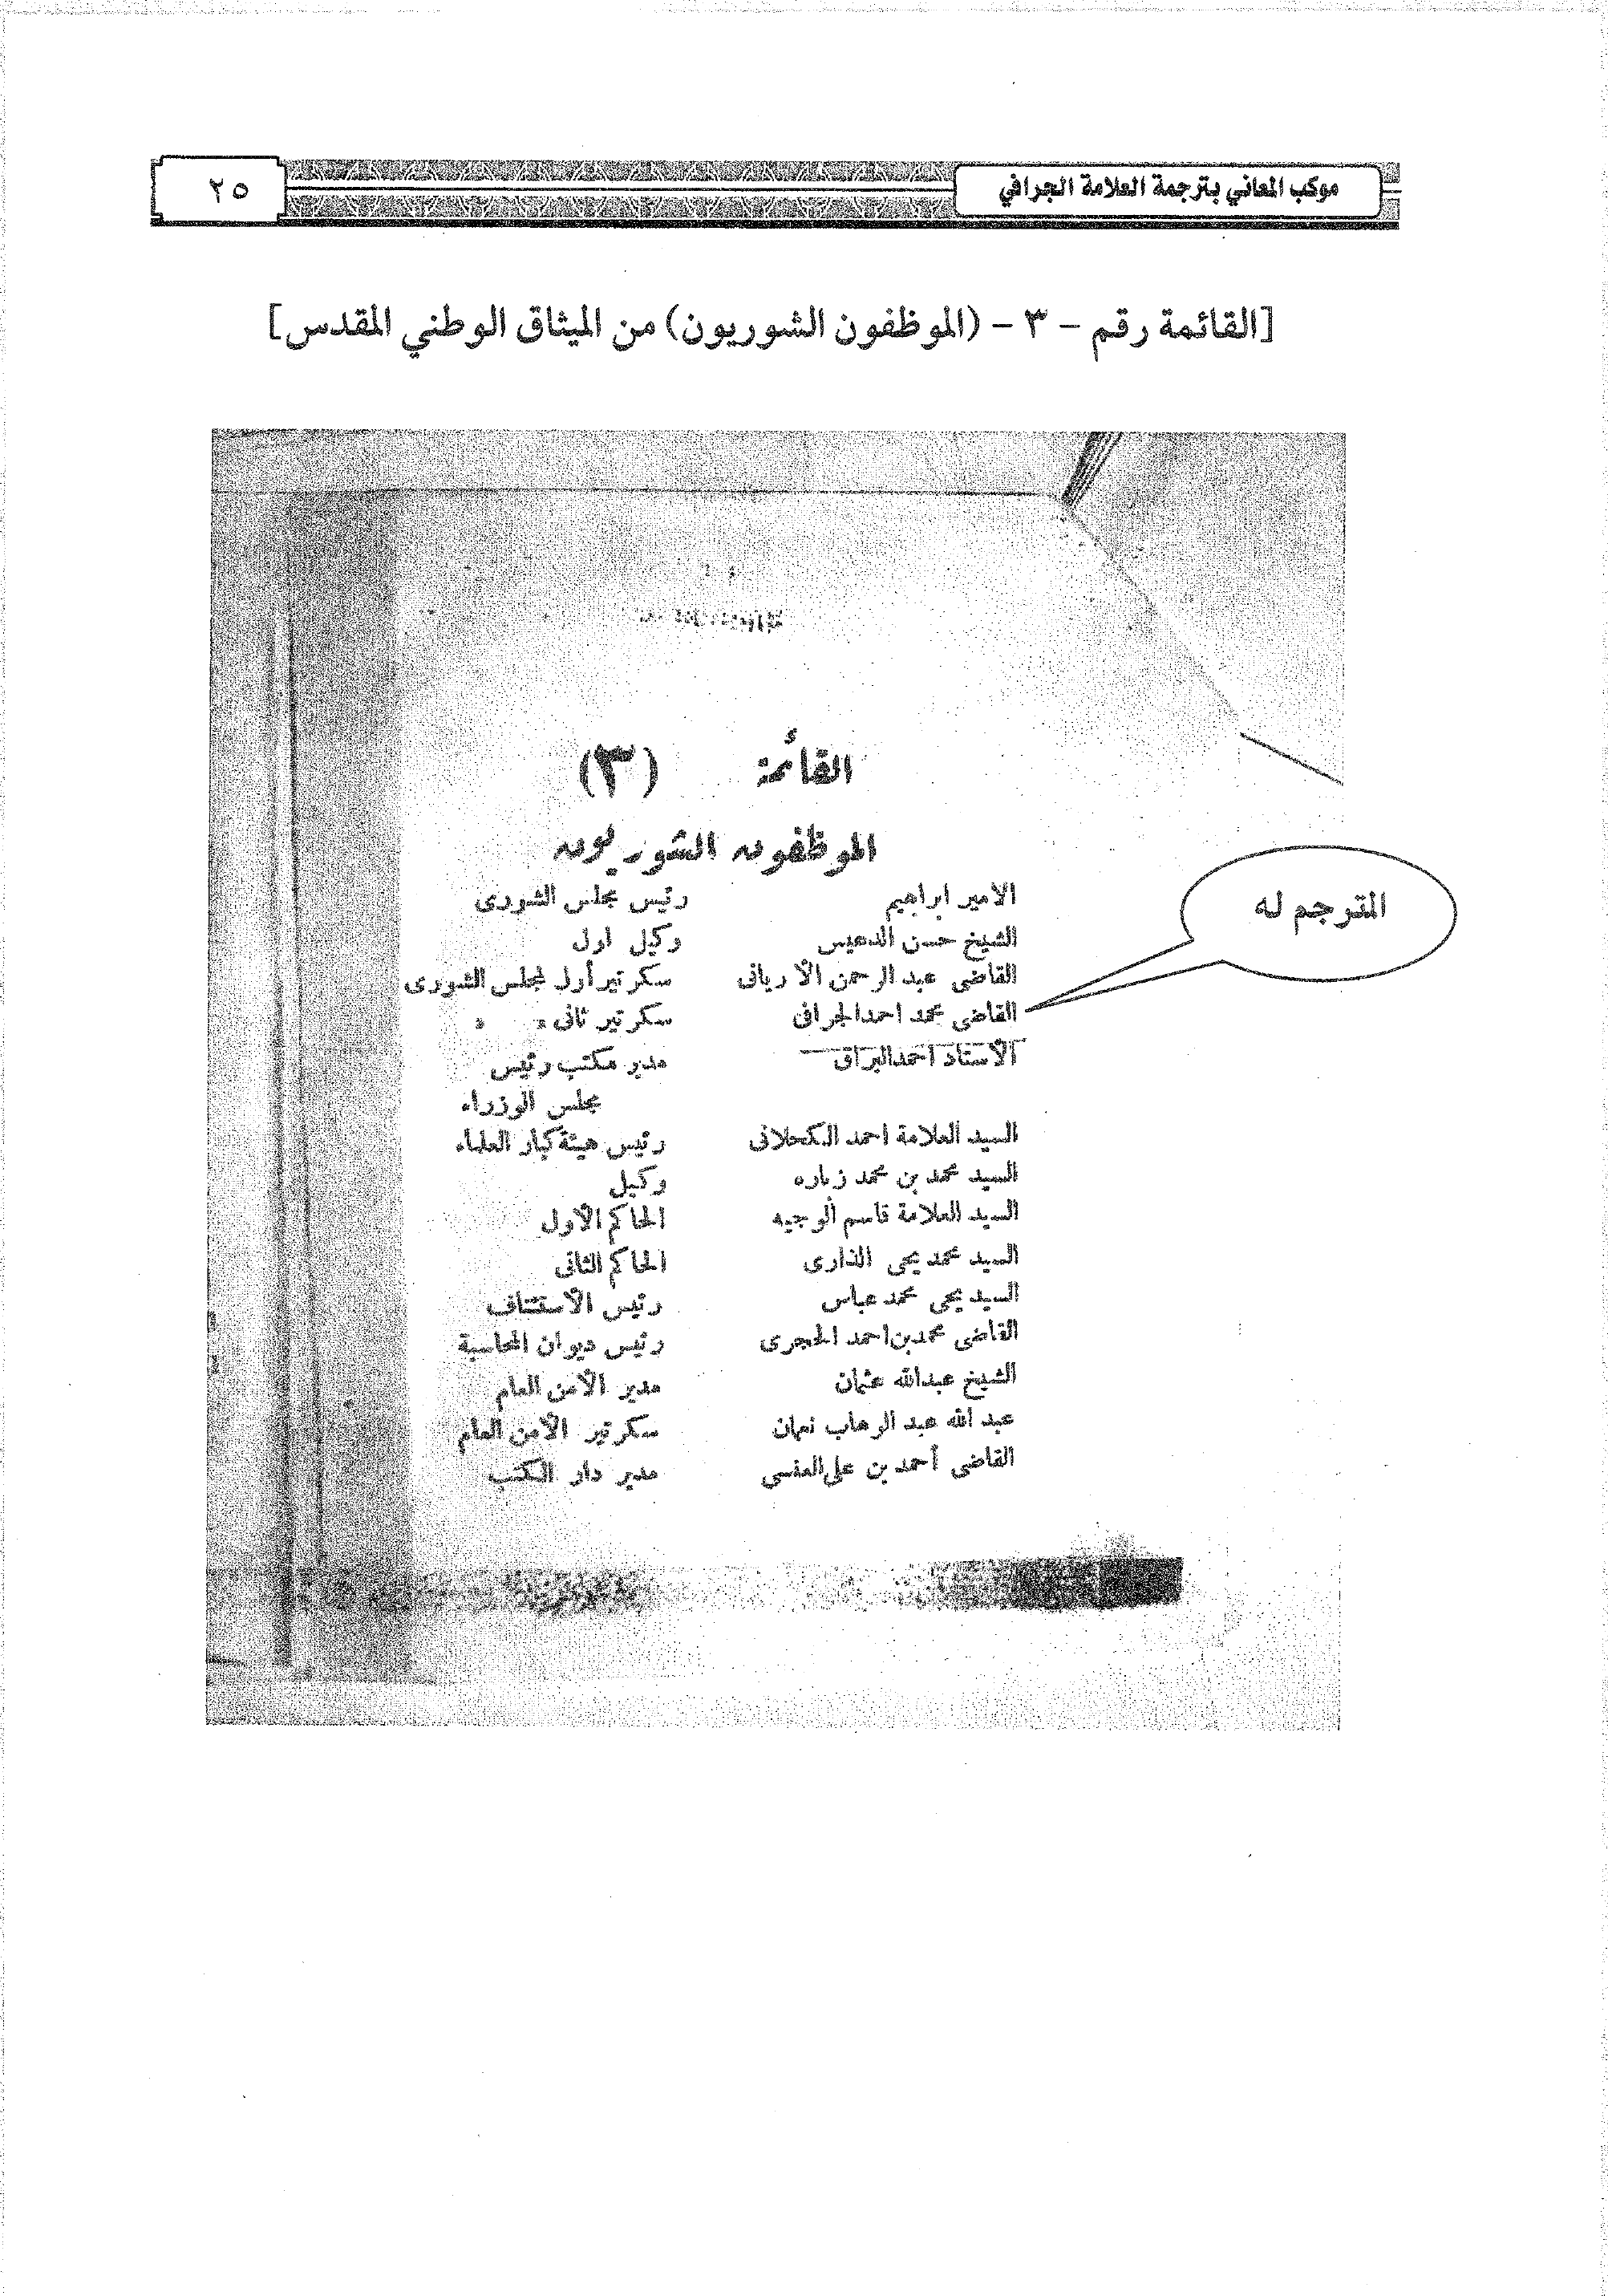 موكب المعاني بترجمة العلامة الجرافي
٢٥
[القائمة رقم – ٣ – (الموظفون الشوريون) من الميثاق الوطني المقدس]
القائمة (٣)
الموظفون الشوريون
الامير ابراهيم رئيس مجلس الشورى
الشيخ حسن الدعيس وكيل اول
القاضى عبد الرحمن الأريانى سكرتير أول لمجلس الشورى
القاضى محمد احمد الجرافى سكرتير ثانى » »
المترجم له
الأستاذ احمد البراق مدير مكتب رئيس
مجلس الوزراء
السيد العلامة احمد الكحلانى رئيس هيئة كبار العلماء
السيد محمد بن محمد زباره وكيل
السيد العلامة قاسم الوجيه الحاكم الأول
السيد محمد يحيى الذارى الحاكم الثانى
السيد يحيى محمد عباس رئيس الأستئناف
القاضى محمد بن احمد الحجرى رئيس ديوان المحاسبة
الشيخ عبدالله عثمان مدير الأمن العام
عبد الله عبد الوهاب نعمان سكرتير الأمن العام
القاضى أحمد بن على العنسى مدير دار الكتب